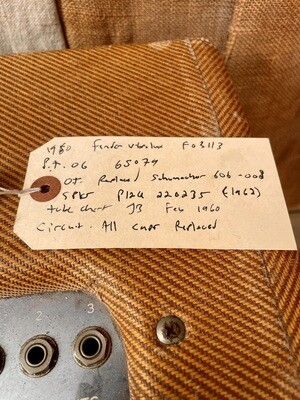 1960 Fender Vibrolux F03113
P.T. 06 65079
O.T. Replaced Schumacher 606-008
SPKR P12Q 220235 (1962)
tube chart JB Feb 1960
Circuit. All caps Replaced
2
3